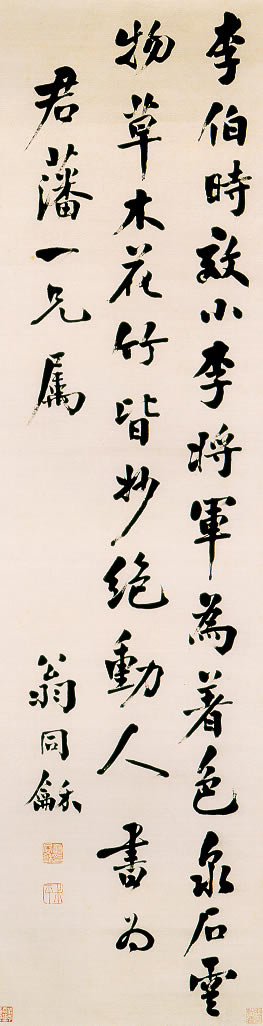 李伯時效小李將軍為著色泉石雲
物草木花竹皆妙絕動人書為
君藩一兄属
翁同龢